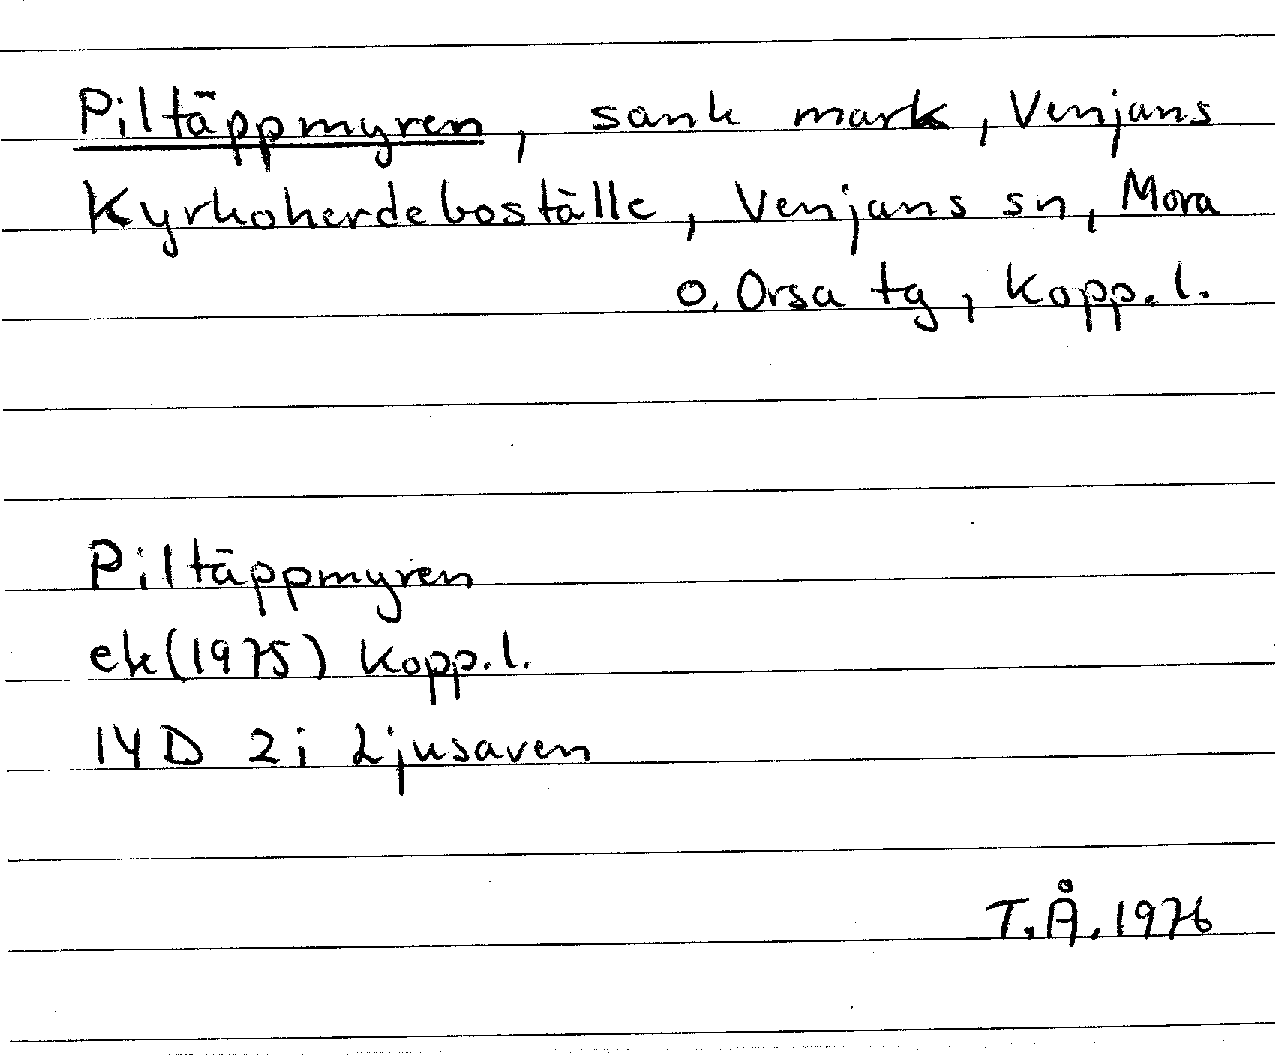 Piltäppmyren, sank mark, Venjans
Kyrkoherdeboställe, Venjans sn, Mora
o. Orsa tg, Kopp. l.
Piltäppmyren
ek (1975) Kopp. l.
14D 2i Ljusaven
T.Å. 1976